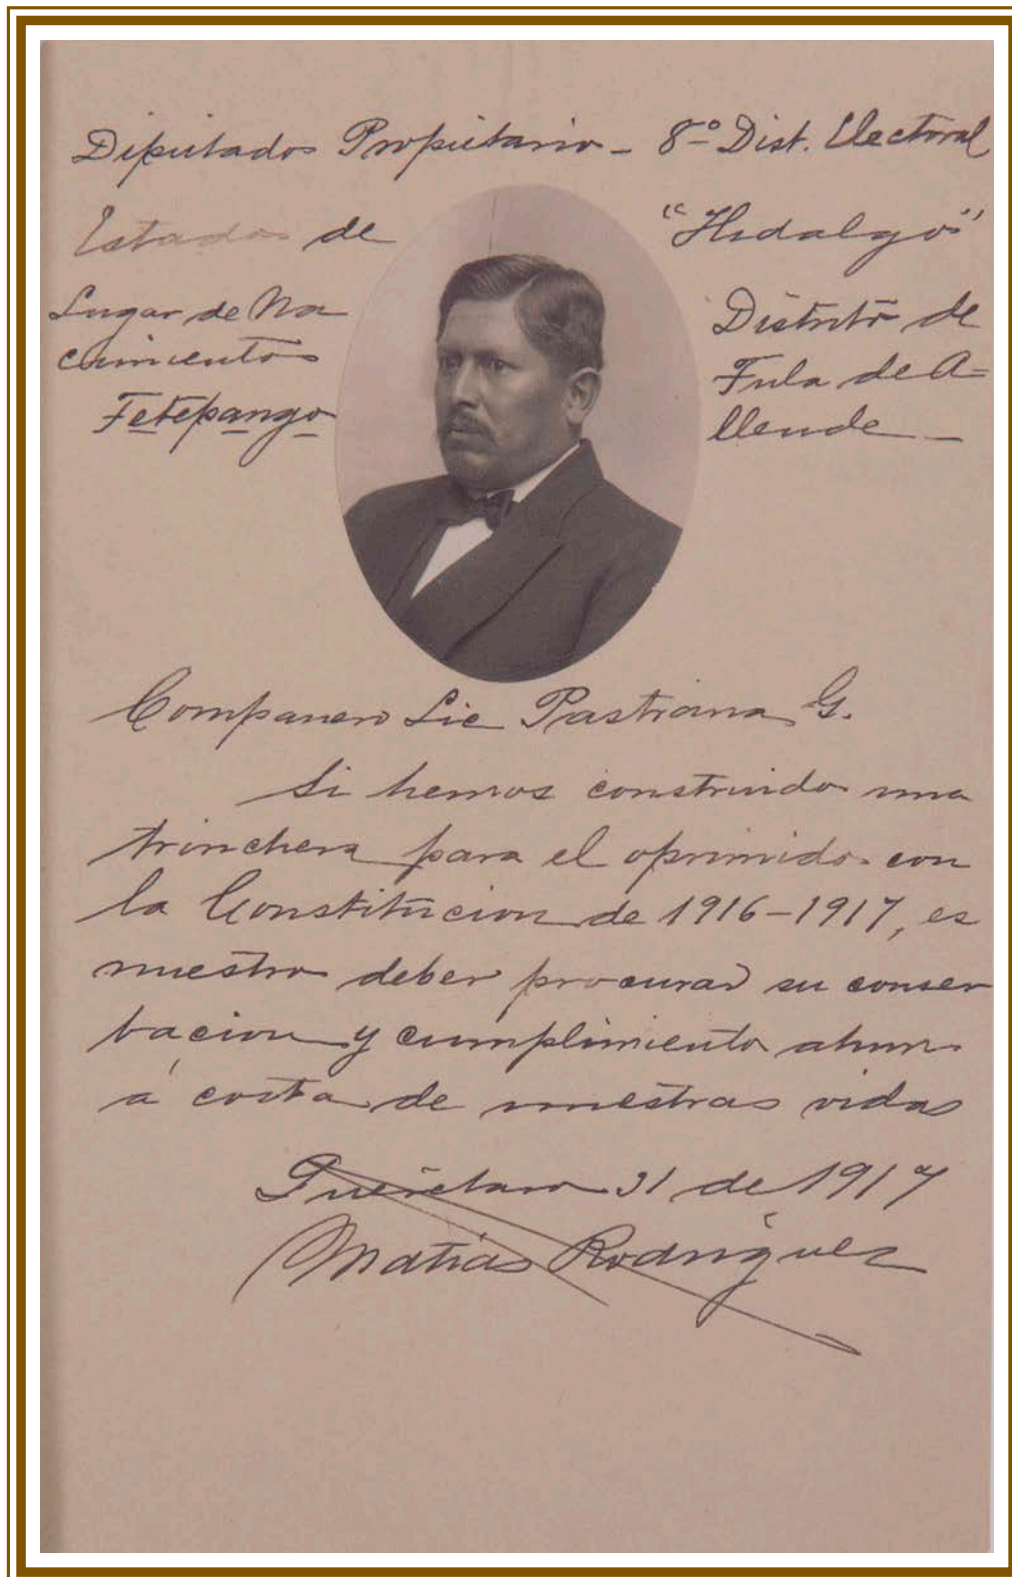 Diputado Propietario - 8º Dist. Electoral
Estado de "Hidalgo"
Lugar de Na
cimiento
Tetepango
Distrito de
Tula de A=
llende -
Companero Lic Pastrana G.
Si hemos construido una
trinchera para el oprimido con
la Constitucion de 1916-1917, es
nuestro deber procurar su conser
bacion y cumplimiento ahun
á costa de nuestras vidas
Querétaro 31 de 1917
Matias Rodríguez